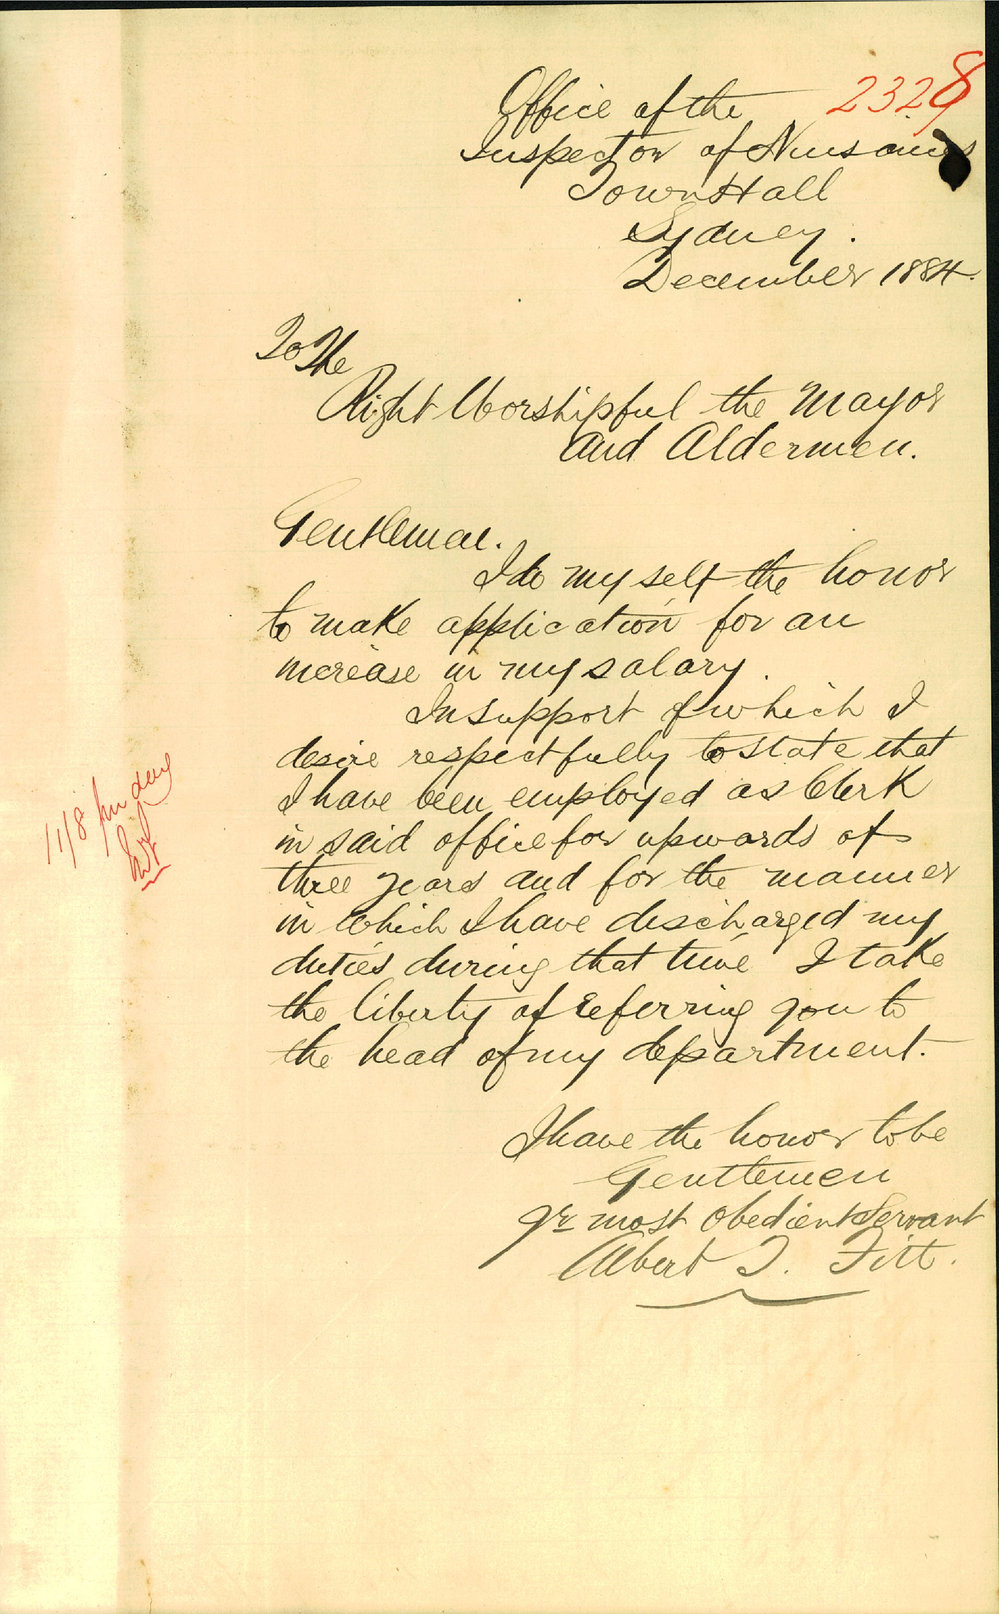 2328
Office of the
Inspector of Nuisances
Town Hall
Sydney.
December 1884.
To The
Right Worshipful the Mayor
and Aldermen.
Gentlemen.
I do my self the honor
to make application for an
increase in my salary.
In support of which I
desire respectfully to state that
I have been employed as Clerk
in said office for upwards of
three years and for the manner
in which I have discharged my
duties during that time I take
the liberty of referring you to
the head of my department.
11/8 per day
I have the honor to be
Gentlemen
yr most obedient Servant
Albert T. Fitt.